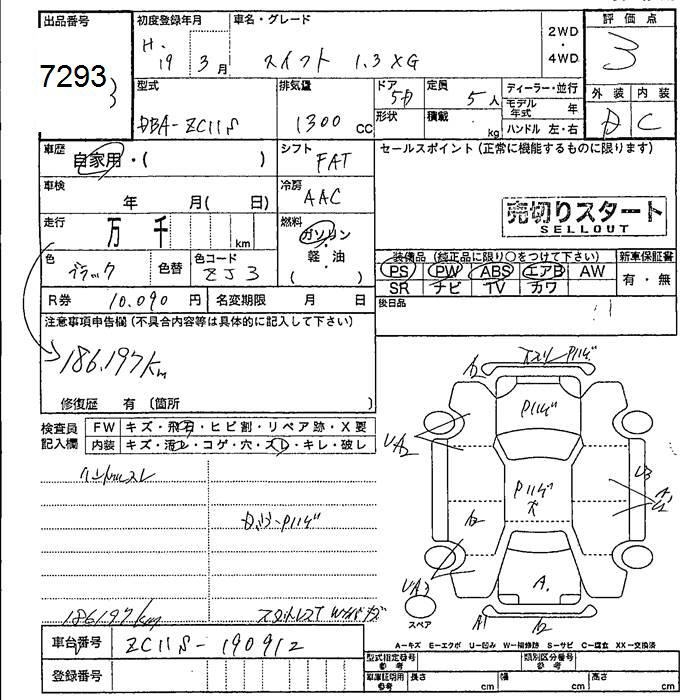 出品番号
7293
初度登録年月
H. 19 3月
車名・グレード
スイフト 1.3 XG
2WD
・
4WD
評価点
3
外装 内装
D C
型式
DBA-ZC11S
排気量
1300 cc
ドア
5D
形状
定員
5人
積載
kg
ディーラー・並行
モデル年式 年
ハンドル 左・右
車歴
自家用・( )
シフト
FAT
セールスポイント(正常に機能するものに限ります)
車検
年 月( 日)
冷房
AAC
売切りスタート
SELLOUT
走行
万 千 km
燃料
ガソリン
・
軽・油
( )
色
ブラック
色替
色コード
ZJ3
装備品(純正品に限り〇をつけて下さい)
PS PW ABS エアB AW
SR ナビ TV カワ
新車保証書
有・無
R券 10,090 円
名変期限 月 日
後日品
注意事項申告欄(不具合内容等は具体的に記入して下さい)
186,197km
修復歴 有 〔箇所 〕
検査員
記入欄
FW キズ・飛石・ヒビ割・リペア跡・X要
内装 キズ・汚レ・コゲ・穴・スレ・キレ・破し
ハンドルスレ
186197km
車台番号 ZC11S-190912
登録番号
P11ｷﾞ
P11ｷﾞ
UA2
U3
A1
UA3
A.
A1
スペア
A-キズ E-エクボ U-凹み W-補修跡 S-サビ C-腐食 XX-交換済
型式指定番号
参考
類別区分番号
参考
車庫証明用
参考
長さ cm
幅 cm
高さ cm